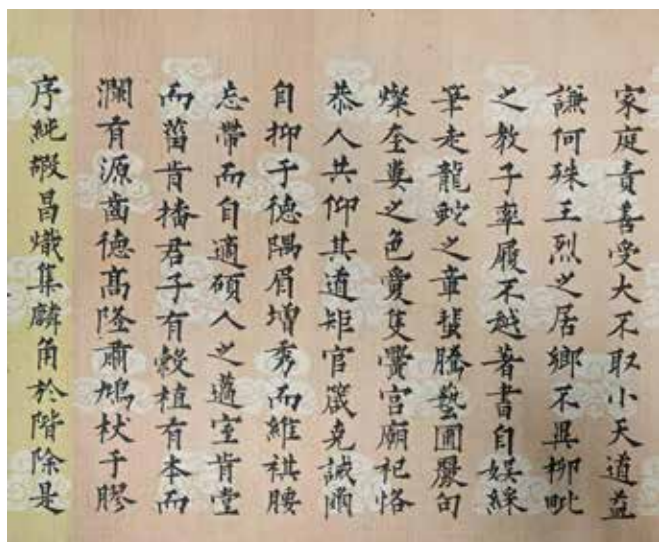 家庭責善受大不取小天道益
謙何殊王烈之居鄉不異柳玭
之教子率履不越著書自娛綵
筆走龍蛇之章蜚騰藝圃麗句
燦奎婁之色愛隻黌宮廟祀恪
恭人共仰其道矩官箴克誠爾
自抑于德隅眉增秀而維祺腰
忘帶而自適碩人之薖室肯堂
而菑肯播君子有穀植有本而
瀾有源齒德高隆肅鳩杖于膠
序純嘏昌熾集麟角於階除是